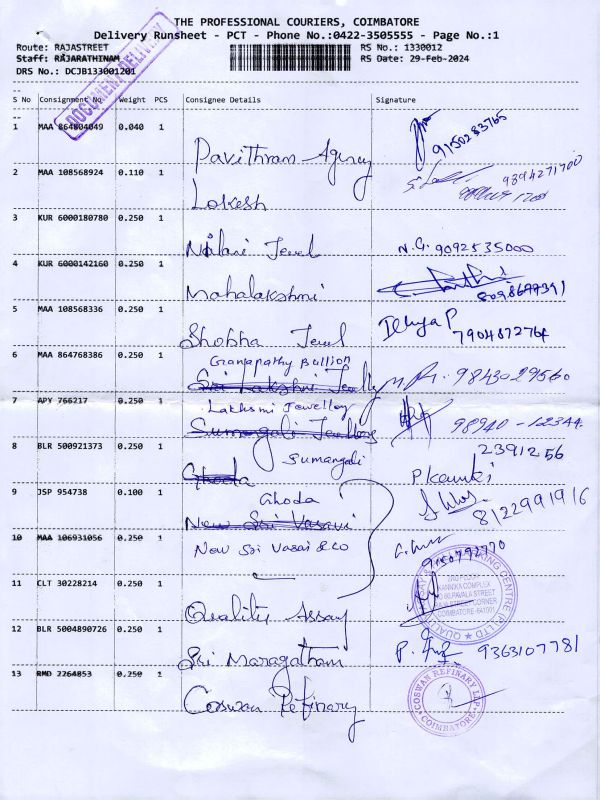 THE PROFESSIONAL COURIERS, COIMBATORE
Delivery Runsheet - PCT - Phone No.:0422-3505555 - Page No.:1
Route: RAJASTREET RS No.: 1330012
Staff: RAJARATHINAM RS Date: 29-Feb-2024
DRS No.: DCJB133001201
DOCUMENT DELIVERY
S No Consignment No. Weight PCS Consignee Details Signature
1 MAA 864804049 0.040 1
Pavithran Agency 9150283765
2 MAA 108568924 0.110 1
Lokesh 9894271700
3 KUR 6000180780 0.250 1
Nalani Jewel N.G. 9092535000
4 KUR 6000142160 0.250 1
Mahalakshmi
5 MAA 108568336 0.250 1
Shobha Jewel P 7904872764
6 MAA 864768386 0.250 1
Ganapathy Bullion
Sri Lakshmi 9843029560
7 APY 766217 0.250 1
Lakhsmi Jewellry
Sumangali 98940-12344
8 BLR 500921373 0.250 1
Sumangali 2391256
Ghoda
9 JSP 954738 0.100 1
Ghoda 8122991916
New Sri Vasavi
10 MAA 106931056 0.250 1
New Sri Vasai & co
11 CLT 30228214 0.250 1
Quality Assay
COIMBATORE-641001
12 BLR 5004890726 0.250 1
Sri Maragatham P. 9363107781
13 RMD 2264853 0.250 1
Coswan Refinary COSWAN REFINARY LLP
COIMBATORE